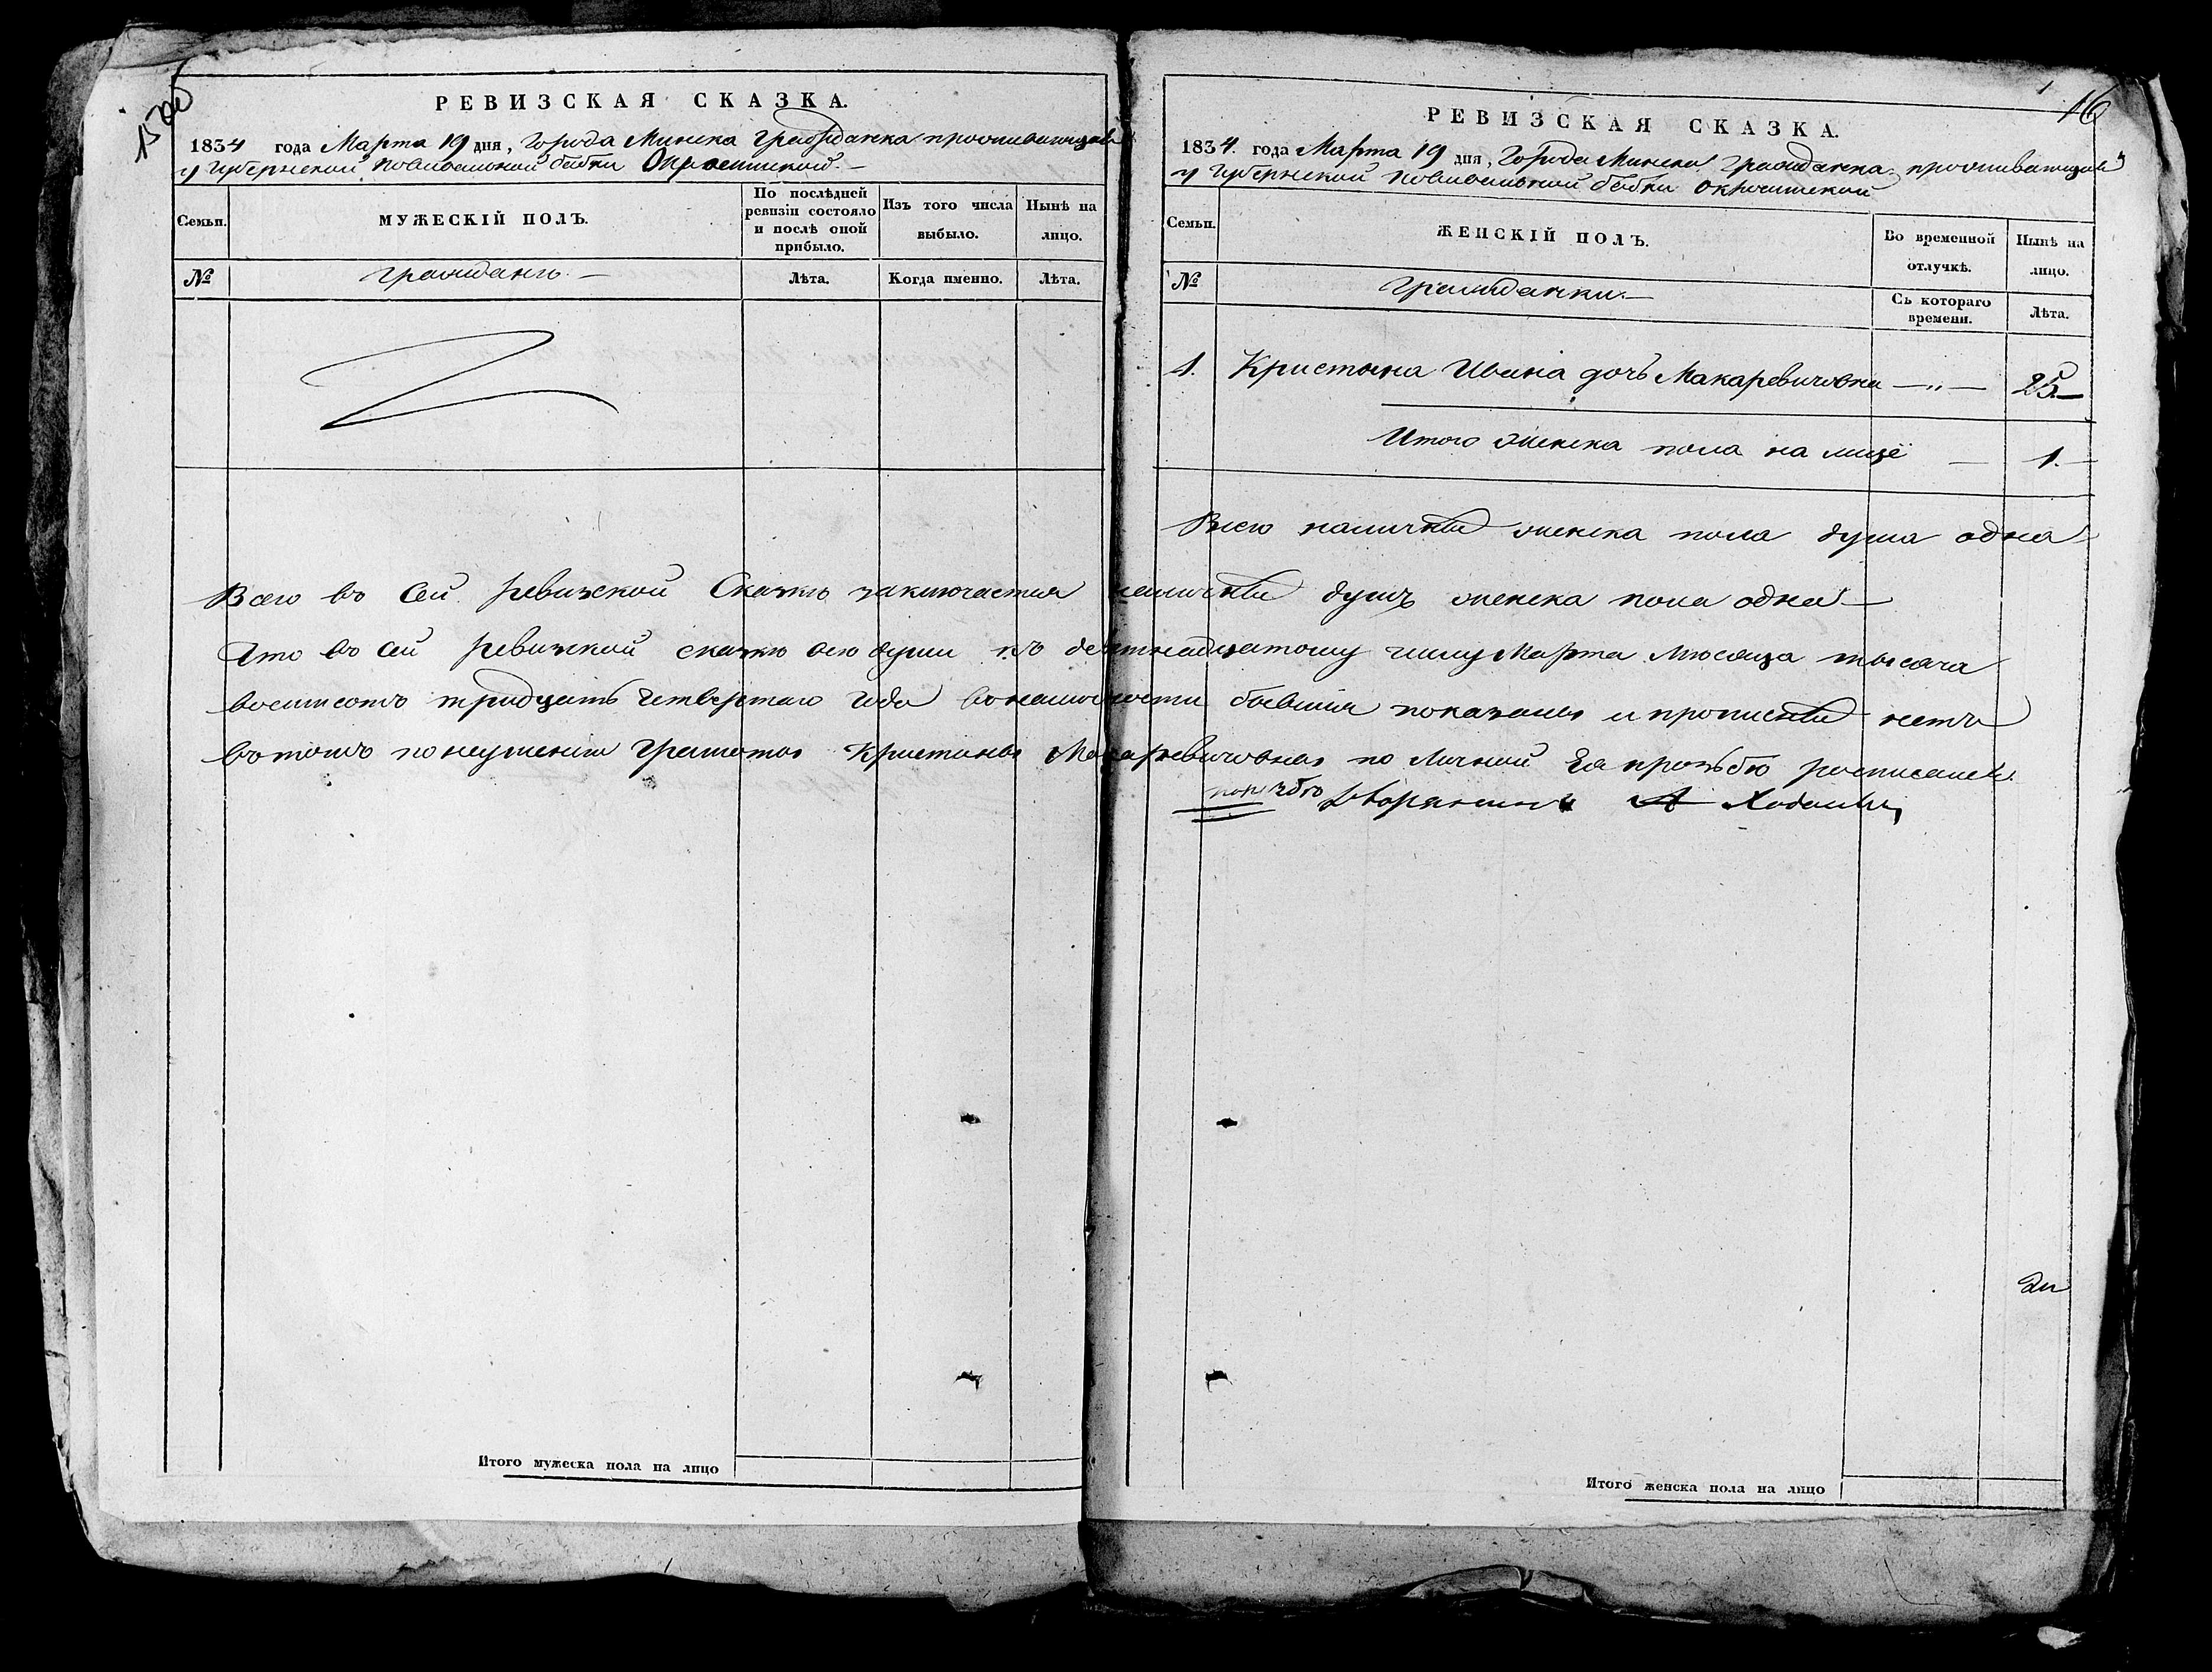 15 об
РЕВИЗСКАЯ СКАЗКА.
1834 года Марта 19 дня, Города Минска Гражданка проживающая
у Губернской повивальной бабки
Семьи.
МУЖЕСКІЙ ПОЛЪ.
По послѣдней ревизіи состояло и послѣ оной прибыло.
Изъ того числа выбыло.
Нынѣ на лицо.
№
Гражданъ.
Лѣта.
Когда именно.
Лѣта.
16
РЕВИЗСКАЯ СКАЗКА.
1834. года Марта 19 дня, Города Минска Гражданка проживающая
у Губернской повивальной бабки
Семьи.
ЖЕНСКІЙ ПОЛЪ.
Во временной отлучкѣ.
Нынѣ на лицо.
№
Гражданки.
Съ котораго времени.
Лѣта.
1. Кристына Ивана дочь Макаревичовна — „ — 25. —
Итого женска пола на лице — 1. —
Всего наличныхъ женска пола душа одна
Всего въ сей ревизской Сказке заключается наличныхъ душъ женска пола одна —
Что въ сей ревизской сказке все души къ девятнадцатому числу Марта месяца тысяча
восемсотъ тридцать четвертаго года въ наличности бывшия показаны и прописныхъ нетъ
въ томъ по неумению грамоты Кристыны Макаревичовны по личной Ея прозьбе росписался
Дворянинъ А
Итого мужеска пола на лицо
Итого женска пола на лицо